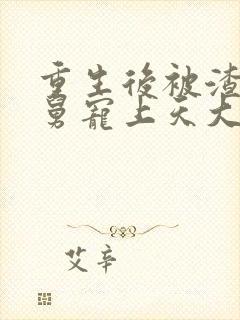 重生後被渣
舅寵上天大
艾辛